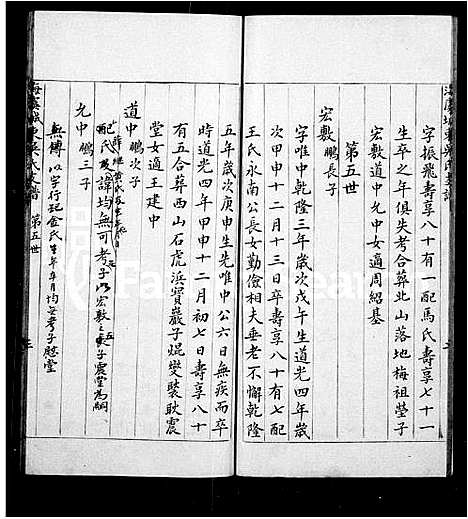 字振飛壽享八十有一配馬氏壽享七十一
生卒之年俱失考合葬北山落地梅祖塋子
宏敷道中允中女適周紹基
第五世
宏敷 鵬長子
字唯中乾隆三年歲次戊午生道光四年歲
次甲申十二月十三日卒壽享八十有七配
王氏永南公長女勤儉相夫垂老不懈乾隆
五年歲次庚申生先唯中公六日無疾而卒
時道光四年甲申十二月初七日壽享八十
有五合葬西山石虎浜寶巖子焜燮裝耿震
堂女適王建中
道中 鵬次子
配氏及諱均無可考子以宏敷之五子震堂為嗣
允中 鵬三子
無傳 以字行 氏生卒年月均無考子慰堂
第五世